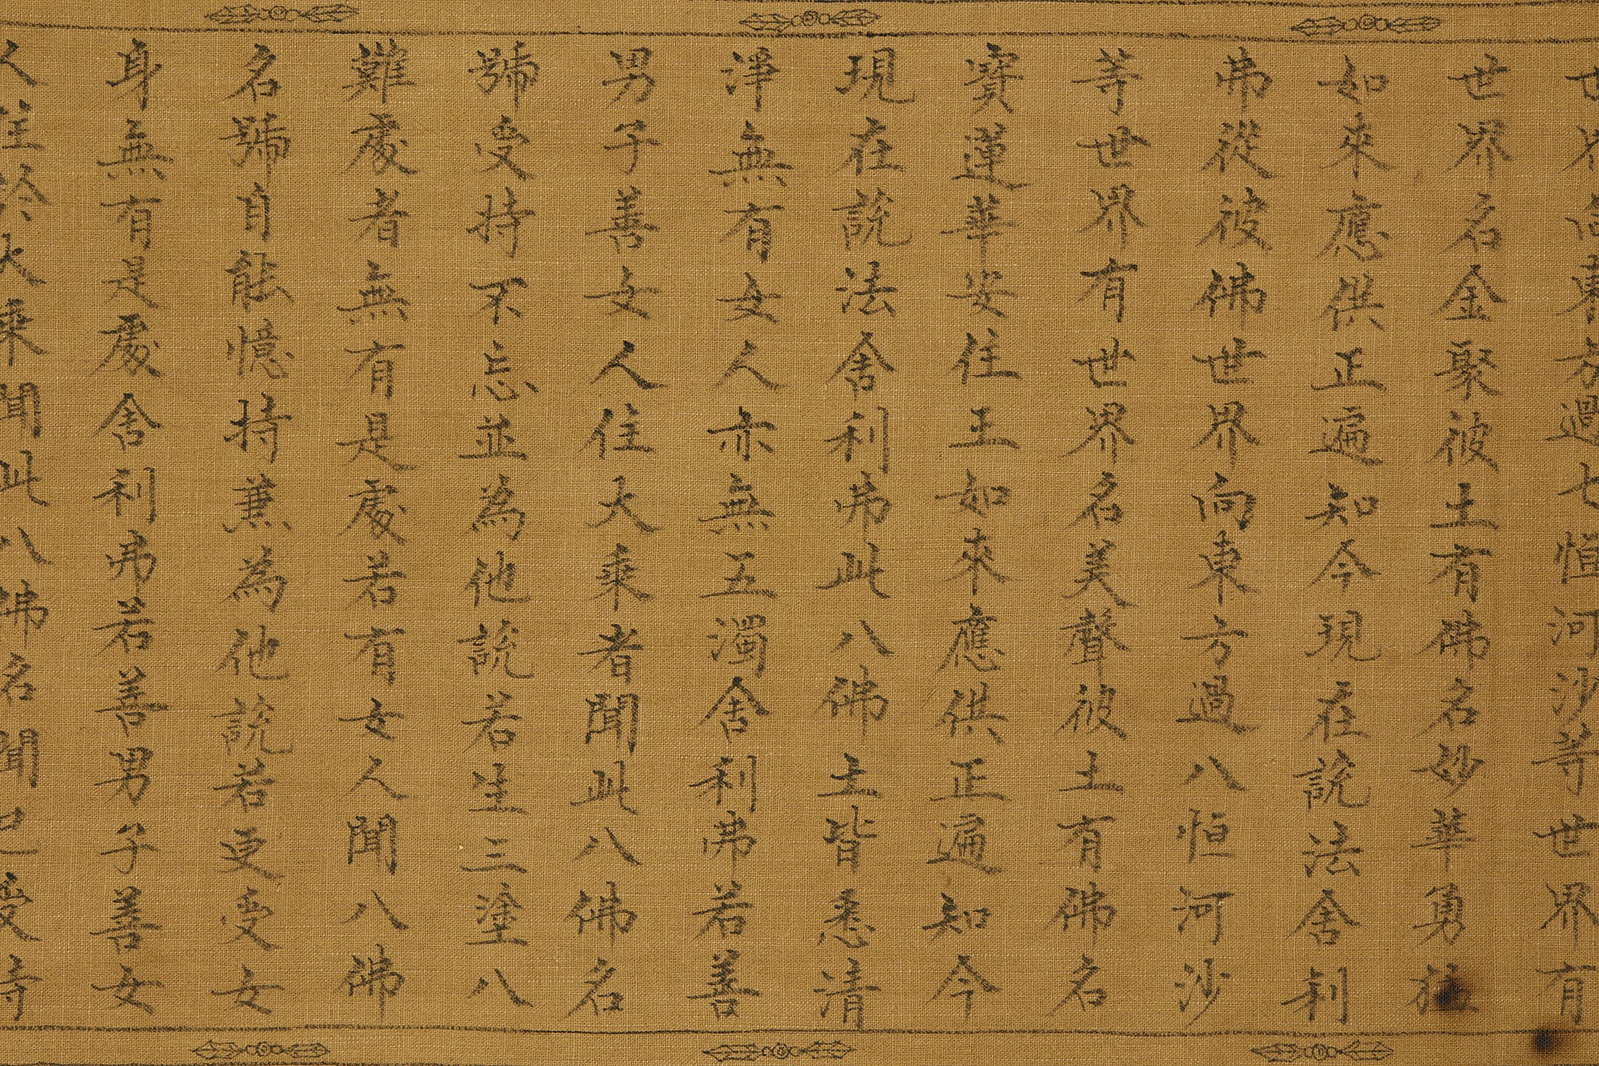 世界向東方過七恒河沙等世界有
世界名金聚彼土有佛名妙華勇猛
如來應供正遍知今現在說法舍利
弗從彼佛世界向東方過八恒河沙
等世界有世界名美聲彼土有佛名
寶蓮華安住王如來應供正遍知今
現在說法舍利弗此八佛土皆悉清
淨無有女人亦無五濁舍利弗若善
男子善女人住大乘者聞此八佛名
號受持不忘並為他說若生三塗八
難處者無有是處若有女人聞八佛
名號自能憶持兼為他說若更受女
身無有是處舍利弗若善男子善女
人住於大乘聞此八佛名聞已受持